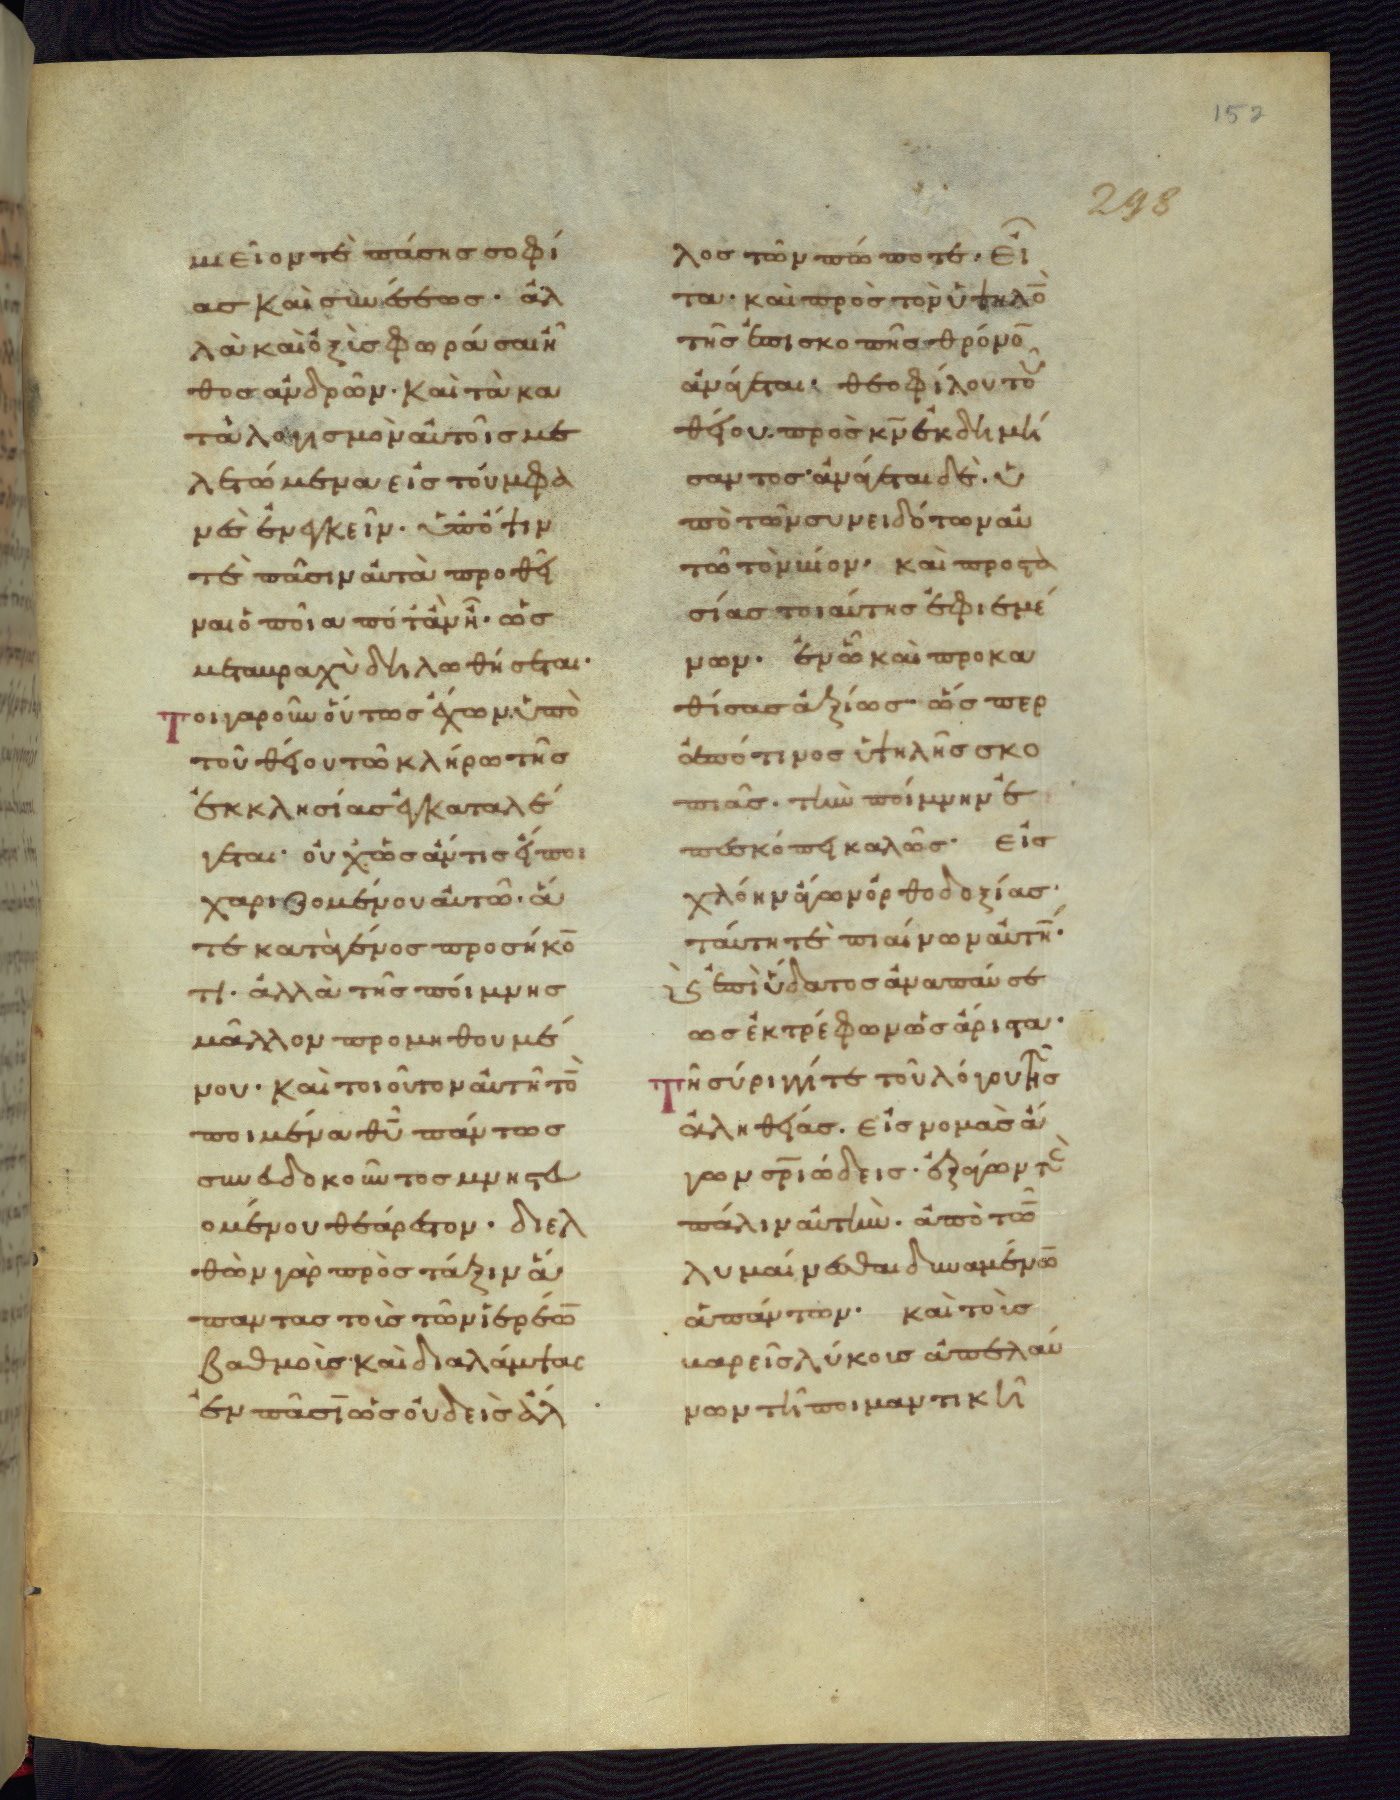 152
298
μεῖον τὲ πάσης σοφί
ας καὶ συνέσεως· ἀλ
λὰ καὶ ὀξὺς φωρᾶσαι ἦ
θος ἀνδρῶν· καὶ τὰ κα
τὰ λογισμὸν αὐτοῖς με
λετώμενα εἰς τοὐμφα
νὲς ἐνεγκεῖν· ὑπόψιν
τὲ πᾶσιν αὐτὰ προθεῖ
ναι ὁποῖα πότἂν ἦ· ὡς
μετα βραχὺ δηλωθήσεται·
Τοιγαροῦν οὕτως ἔχων ὑπὸ
τοῦ θείου τῶ κλήρω τῆς
ἐκκλησίας ἐγκαταλέ
γεται· οὐχ ὡς ἄν τις εἴποι
χαριζομένου αὐτῶ· ἅ
τε κατὰ γένος προσήκο̄
τι· ἀλλὰ τῆς ποίμνης
μᾶλλον προμηθουμέ
νου· καὶ τοιοῦτον αὐτῆ τὸ̄
ποιμένα θῦ πάντως
συνεδοκοῦντος μνηστευ
ομένου θεάρεστον· διελ
θὼν γὰρ πρὸς τάξιν ἅ
παντας τοὺς τῶν ἱερέω̄
βαθμοὺς· καὶ διαλάμψας
ἐν πᾶσῑ ὡς οὐδεὶς ἄλ
λος τῶν πώποτε· εἶ
τα· καὶ πρὸς τὸν ὑψηλὸ̄
τῆς ἐπισκοπῆς θρόνο̄
ἀνάγεται· θεοφίλου τοῦ
θείου πρὸς κν̄ ἐκδημή
σαντος· ἀνάγεται δὲ· ὑ
πὸ τῶν συνειδότων αὐ
τῶ τὸν βίον· καὶ προστα
σίας τοιαύτης ἐφιεμέ
νων· ἐν ὧ καὶ προκα
θίσας ἀξίως· ὥσπερ
ἀπό τινος ὑψηλῆς σκο
πιᾶς· τὴν ποίμνην ἐ
πεσκόπει καλῶς· εἰς
χλόην ἄγων ὀρθοδοξίας·
ταύτη τὲ πιαίνων αὐτή̄·
κ(αὶ) ἐπὶ ὕδατος ἀναπαύσε
ως ἐκτρέφων ὡς ἄριστα·
Τῆ σύριγγί τε τοῦ λόγου τῆς
ἀληθείας· εἰς νομὰς ἄ
γων σρ̄ιώδεις· ἐξαίρων τὲ
πάλιν αὐτὴν· ἀπὸ τῶ̄
λυμαίνεσθαι δυναμένω̄
ἁπάντων· καὶ τοὺς
βαρεῖς λύκους ἀπελαύ
νων τῆ ποιμαντικῆ